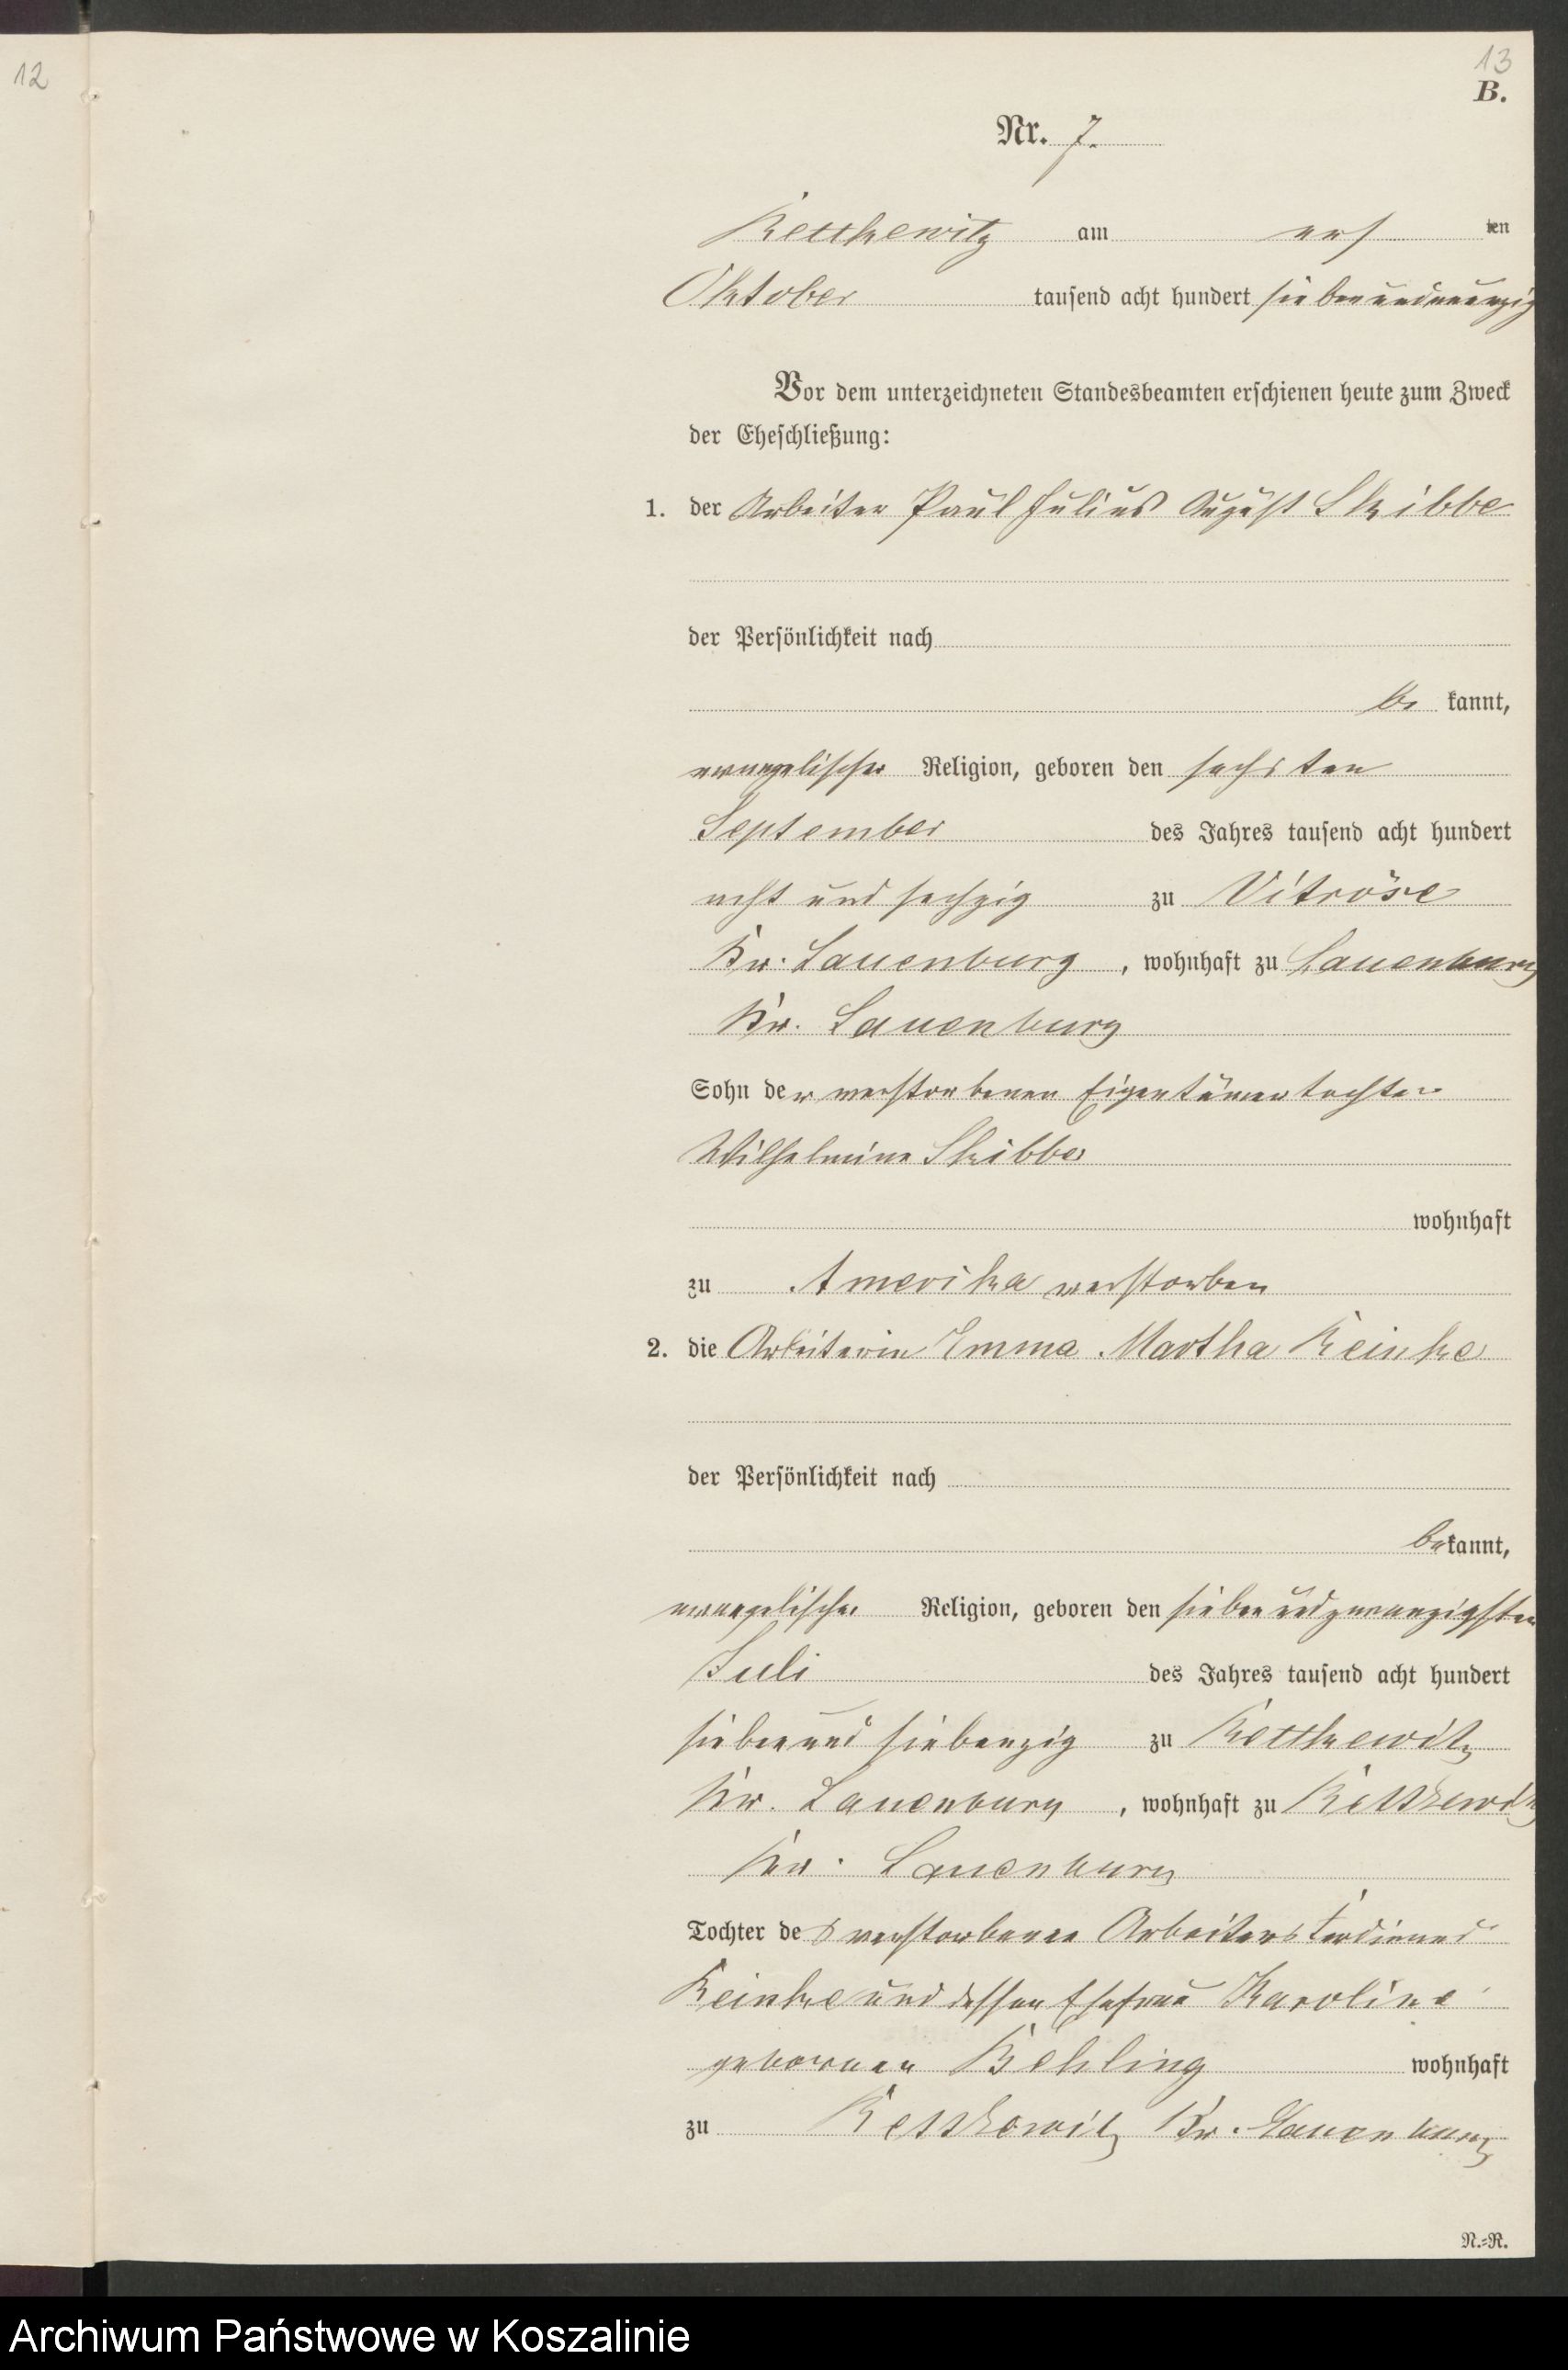 12
13
B.
Nr. 7.
Rettkewitz am ersten
Oktober tausend acht hundert siebenundneunzig
Vor dem unterzeichneten Standesbeamten erschienen heute zum Zweck
der Eheschließung:
1. der Arbeiter Paul Julius August Skibbe
der Persönlichkeit nach
bekannt,
evangelischer Religion, geboren den sechsten
September des Jahres tausend acht hundert
acht und sechzig zu Vitröse
Kr. Lauenburg, wohnhaft zu Lauenburg
Kr. Lauenburg
Sohn der verstorbenen Eigentümertochter
Wilhelmine Skibbe
wohnhaft
zu Amerika verstorben
2. die Arbeiterin Emma Martha Reinke
der Persönlichkeit nach
bekannt,
evangelischer Religion, geboren den siebenundzwanzigsten
Juli des Jahres tausend acht hundert
siebenund siebenzig zu Rettkewitz
Kr. Lauenburg, wohnhaft zu Rettkewitz
Kr. Lauenburg
Tochter des verstorbenen Arbeiters Ferdinand
Reinke und dessen Ehefrau Karoline
geborenen wohnhaft
zu Rettkewitz Kr. Lauenburg
N.=R.
Archiwum Państwowe w Koszalinie